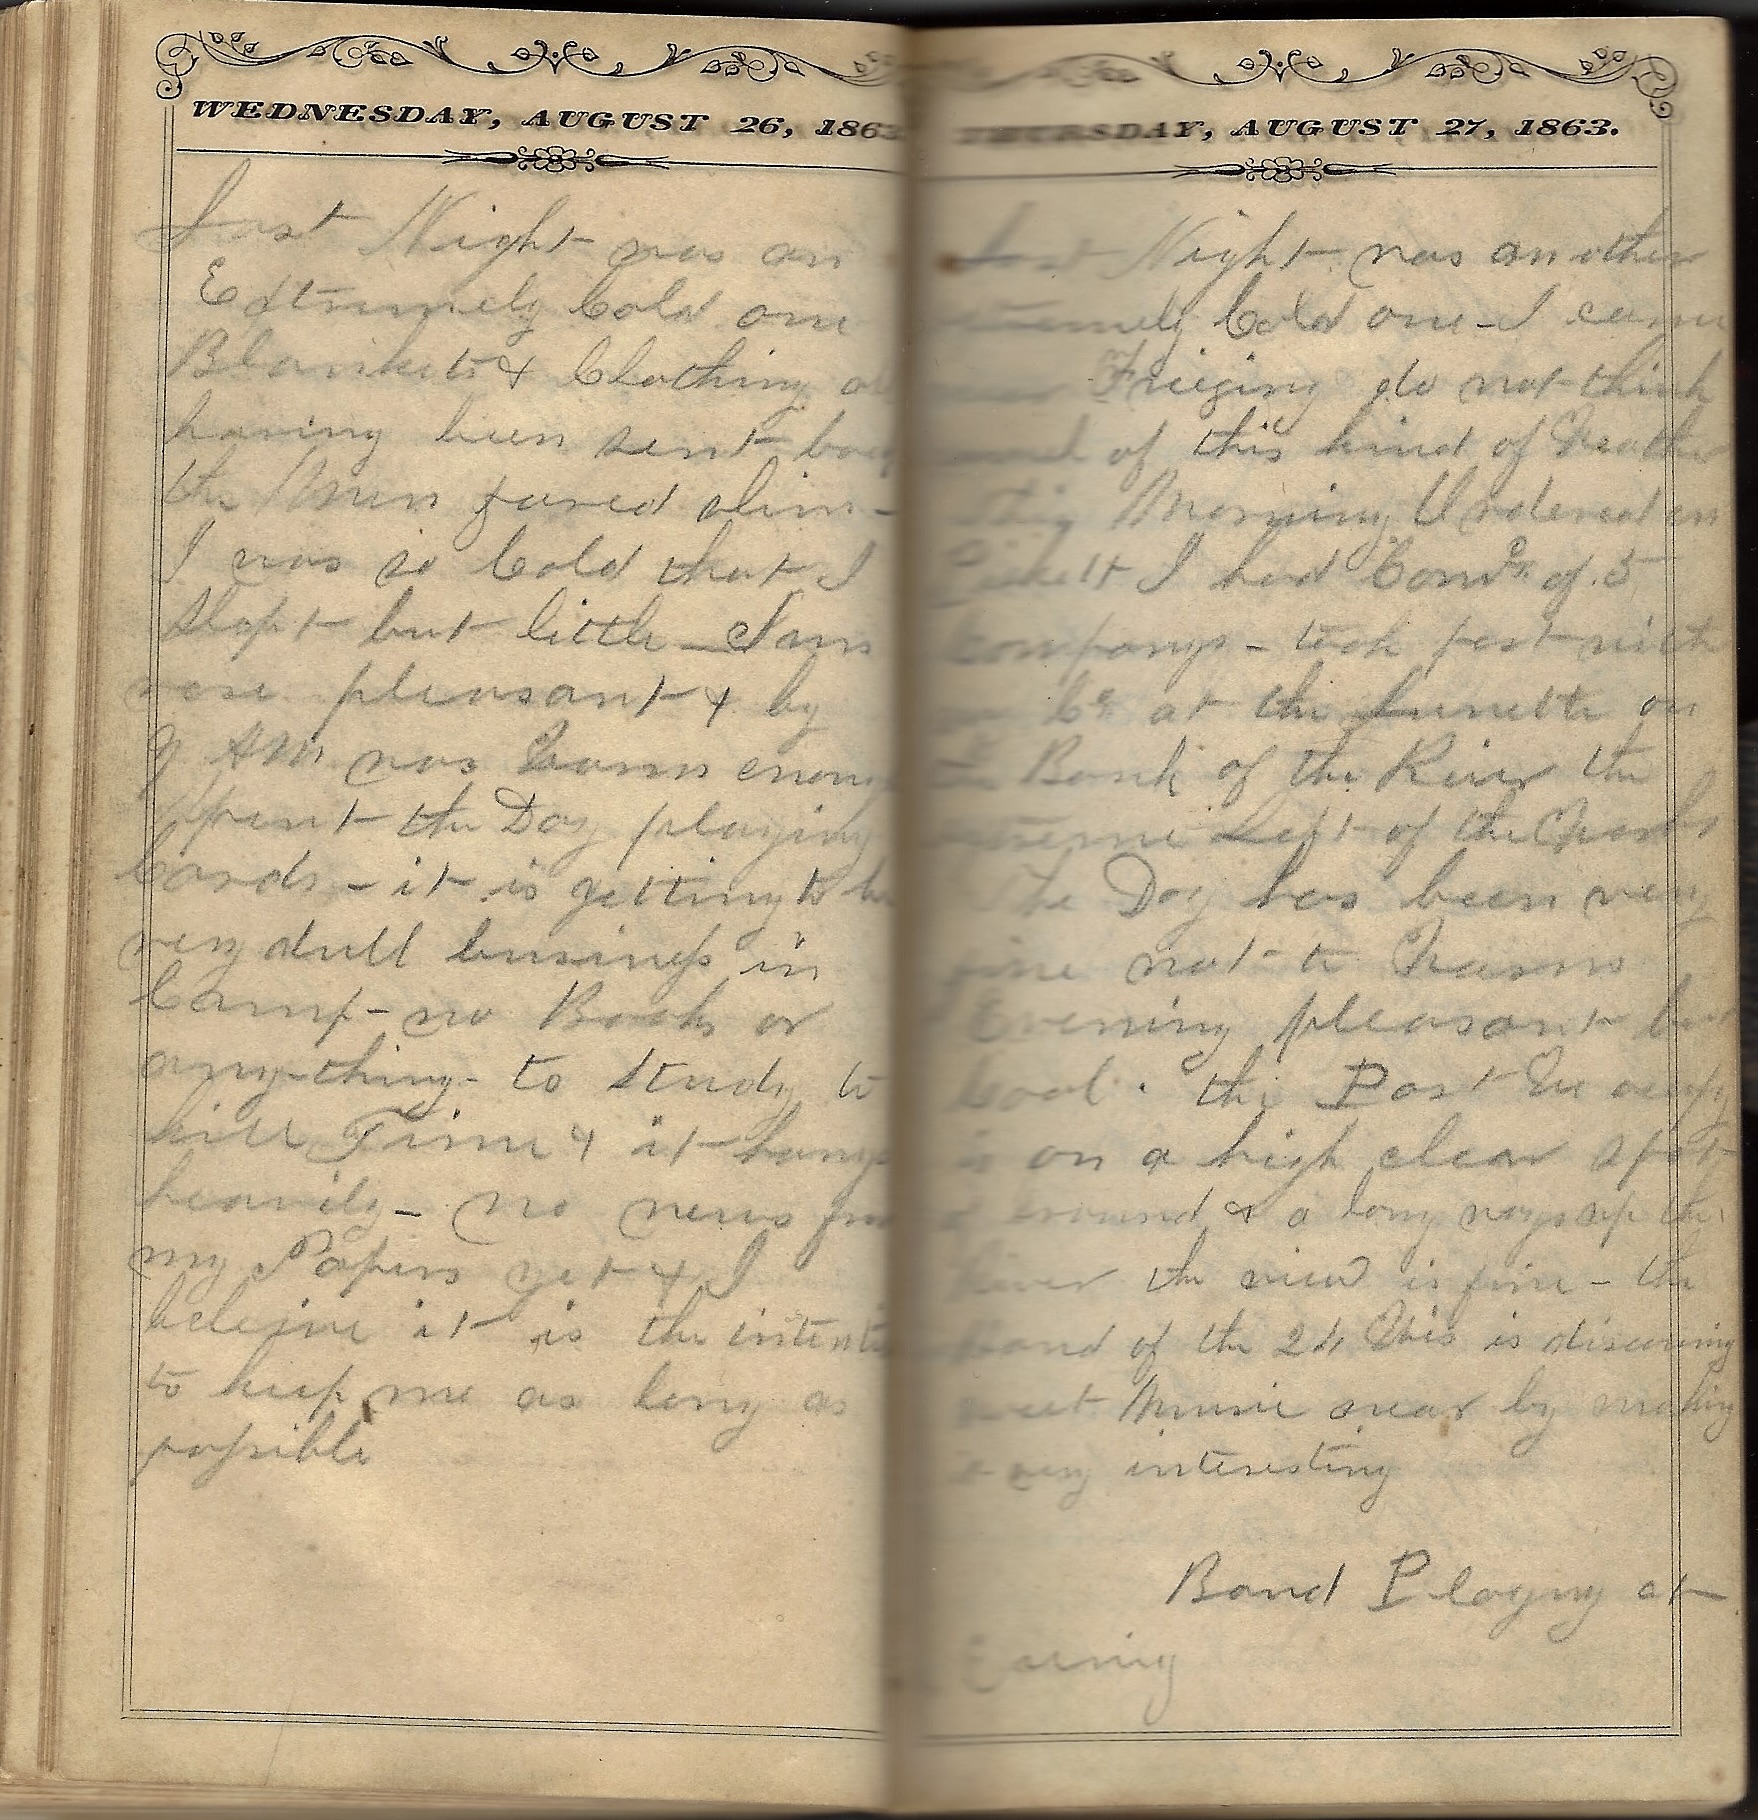 WEDNESDAY, AUGUST 26, 1863
Last Night was an
Extrumely Cold one
Blankets & Clothing al
having been sent bac
the Men fared slim -
I was so Cold that I
slept but little - Sun
rose pleasant & by
9 AM was Warm enoug
Spent the Day playing
Cards - it is getting to be
very dull business in
Camp - no Books or
anything - to study to
kill Time & it hangs
heavily - no news from
my Papers yet & I
beleive it is the intenti
to keep me as long as
possible
THURSDAY, AUGUST 27, 1863.
Last Night was another
extremely Cold one - I came
near Friezing do not think
much of this kind of Weather
this Morning Ordered on
Pickett I had Comdg of 5
Companys - took post with
my Co at the Lunette on
the Bank of the River the
extreme Left of the Works
The Day has been very
fine not to Warm
Evening pleasant but
Cool. the Post We ocupy
is on a high clear spot
of Ground & a long ways up the
River the view is fine - the
Band of the 24 Wis is discoursing
sweet Music near by making
a very interesting
Band Playing at
Evening